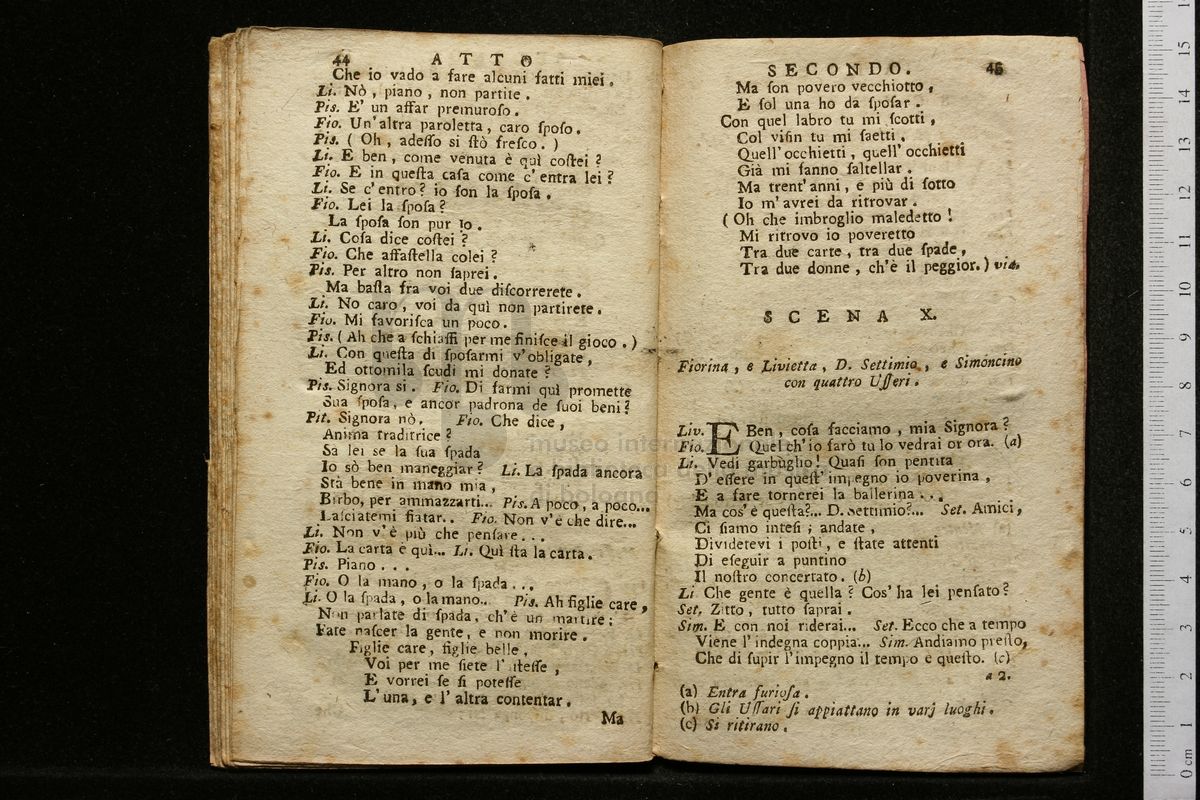 44 ATTO
Che io vado a fare alcuni fatti miei.
Li. Nò, piano, non partite.
Pis. E' un affar premuroſo.
Fio. Un'altra paroletta, caro ſpoſo.
Pis. ( Oh, adeſſo si ſtò freſco. )
Li. E ben, come venuta è quì coſtei ?
Fio. E in queſta caſa come c'entra lei ?
Li. Se c'entro? io ſon la ſpoſa.
Fio. Lei la ſpoſa ?
La ſpoſa ſon pur Io.
Li. Coſa dice coſtei ?
Fio. Che affaſtella colei ?
Pis. Per altro non ſaprei.
Ma baſta fra voi due diſcorrerete.
Li. No caro, voi da quì non partirete.
Fio. Mi favoriſca un poco.
Pis. ( Ah che a ſchiaffi per me finiſce il gioco. )
Li. Con queſta di ſpoſarmi v'obligate,
Ed ottomila ſcudi mi donate ?
Pis. Signora si. Fio. Di farmi quì promette
Sua ſpoſa, e ancor padrona de ſuoi beni ?
Pit. Signora nò. Fio. Che dice,
Anima traditrice ?
Sa lei se la ſua ſpada
Io sò ben maneggiar ? Li. La ſpada ancora
Stà bene in mano mia,
Birbo, per ammazzarti... Pis. A poco, a poco...
Laſciatemi fiatar.. Fio. Non v'è che dire...
Li. Non v'è più che penſare...
Fio. La carta è quì... Li. Quì ſta la carta.
Pis. Piano...
Fio. O la mano, o la ſpada...
Li. O la ſpada, o la mano.. Pis. Ah figlie care,
Non parlate di ſpada, ch'è un martire:
Fate naſcer la gente, e non morire.
Figlie care, figlie belle,
Voi per me ſiete l'iſteſſe,
E vorrei ſe ſi poteſſe
L'una, e l'altra contentar.
Ma
SECONDO. 45
Ma ſon povero vecchiotto,
E ſol una ho da ſpoſar.
Con quel labro tu mi ſcotti,
Col viſin tu mi ſaetti,
Quell'occhietti, quell'occhietti
Già mi fanno ſaltellar.
Ma trent'anni, e più di ſotto
Io m'avrei da ritrovar.
( Oh che imbroglio maledetto !
Mi ritrovo io poveretto
Tra due carte, tra due ſpade,
Tra due donne, ch'è il peggior. ) via.
SCENA X.
Fiorina, e Livietta, D. Settimio, e Simoncino
con quattro Uſſeri.
Liv. E Ben, coſa facciamo, mia Signora ?
Fio. Quel ch'io farò tu lo vedrai or ora. (a)
Li. Vedi garbuglio! Quaſi ſon pentita
D'eſſere in queſt'impegno io poverina,
E a fare tornerei la ballerina...
Ma cos'è queſta?... D. Settimio?... Set. Amici,
Ci ſiamo inteſi ; andate,
Dividetevi i poſti, e ſtate attenti
Di eſeguir a puntino
Il noſtro concertato. (b)
Li. Che gente è quella ? Cos'ha lei penſato?
Set. Zitto, tutto ſaprai.
Sim. E con noi riderai... Set. Ecco che a tempo
Viene l'indegna coppia... Sim. Andiamo preſto,
Che di ſupir l'impegno il tempo è queſto. (c)
a 2.
(a) Entra furioſa.
(b) Gli Uſſari ſi appiattano in varj luoghi.
(c) Si ritirano.
museo internaz
bologna
0 cm 1 2 3 4 5 6 7 8 9 10 11 12 13 14 15